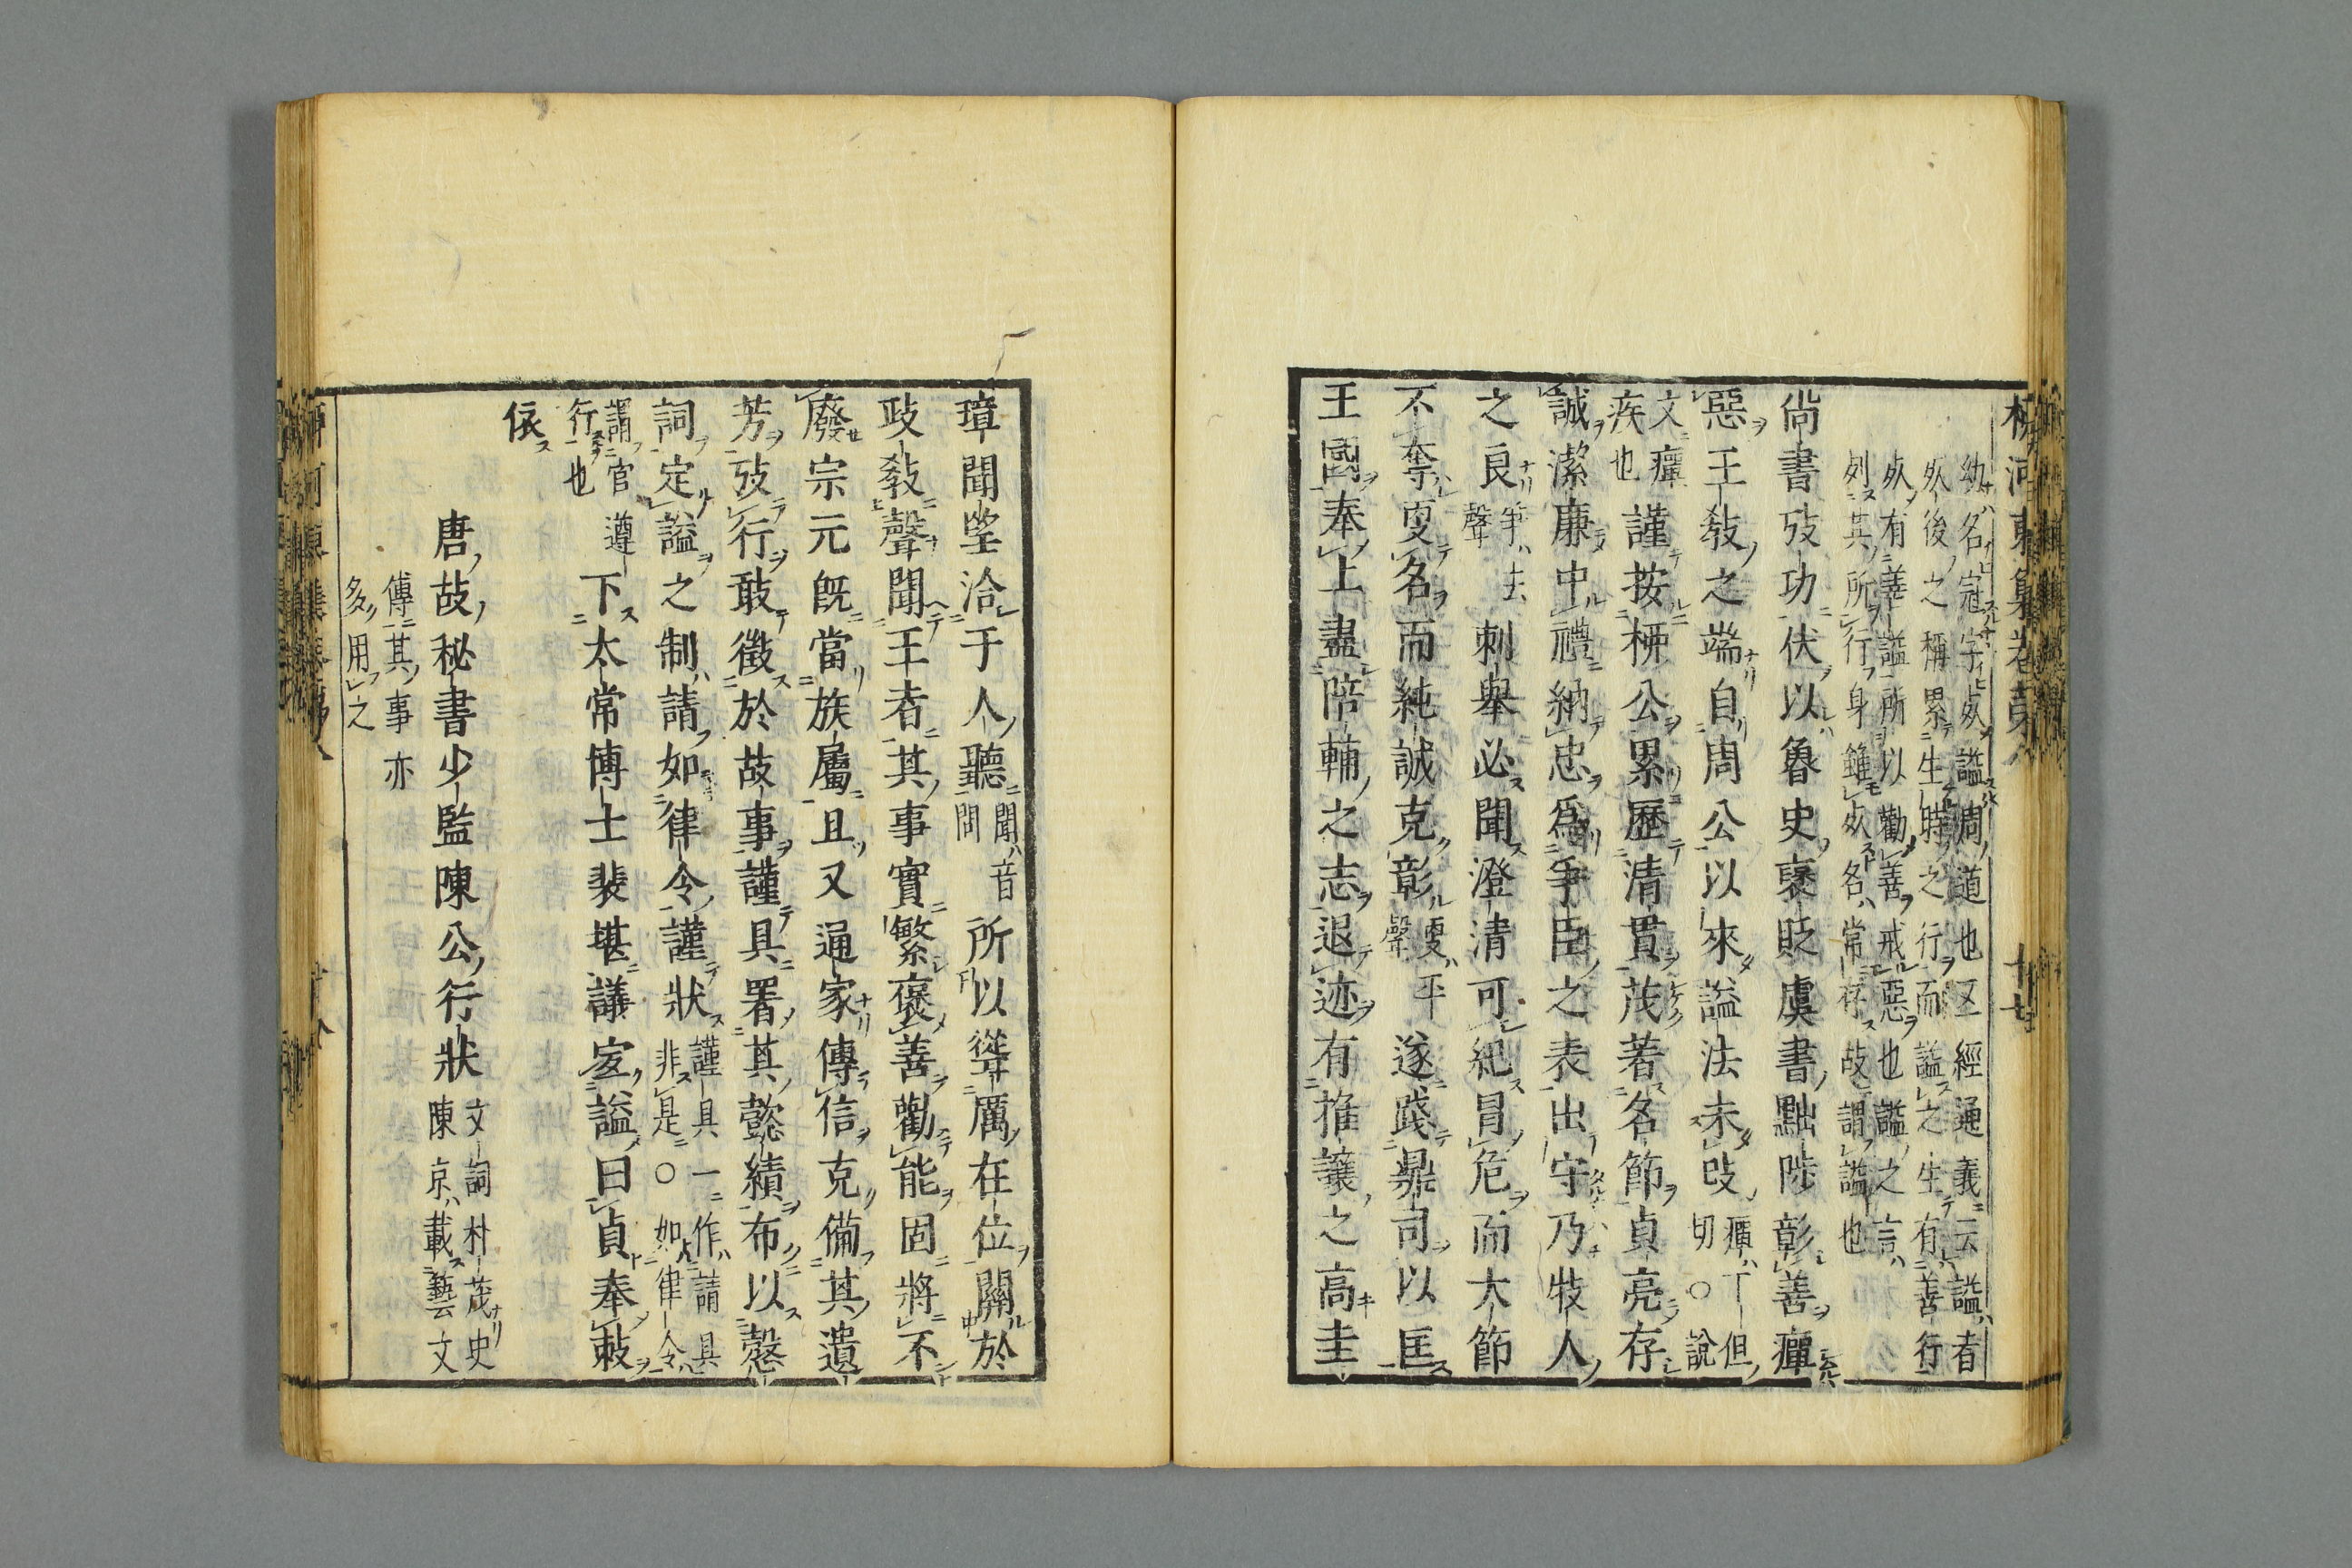 柳河東集卷第八 十七
幼名冠字死謚周道也五經通義云謚者
死後之稱累生時之行而謚之生有善行
死有善謚所以勸善戒惡也謚之言
列其所行身雖死名常存故謂謚也
尚書攷功伏以魯史褒貶虞書黜陟彰善癉
惡王教之端自周公以來謚法未攺癉丁但切○說
文癉疾也謹按柳公累歷清貫茂著名節貞亮存
誠潔廉中禮納忠爲爭臣之表出守乃牧人
之良爭去聲刺舉必聞澄清可紀冒危而大節
不奪更名而純誠克彰更平聲遂踐鼎司以匡
王國奉上盡陪輔之志退迹有推讓之高圭
璋聞望洽于人聽聞音問所以聳厲在位關於
攺教聲聞王者其事實繁褒善勸能固將不
廢宗元旣當族屬且又通家傳信克備其遺
芳攷行敢徵於故事謹具署其懿績布以慤
詞定謚之制請如律令謹狀謹具一作請具非是○如律令
謂官遵行也下太常博士裴堪議㝎謚曰貞奉敕
依
唐故秘書少監陳公行狀文詞朴茂史陳京載藝文
傳其事亦多用之